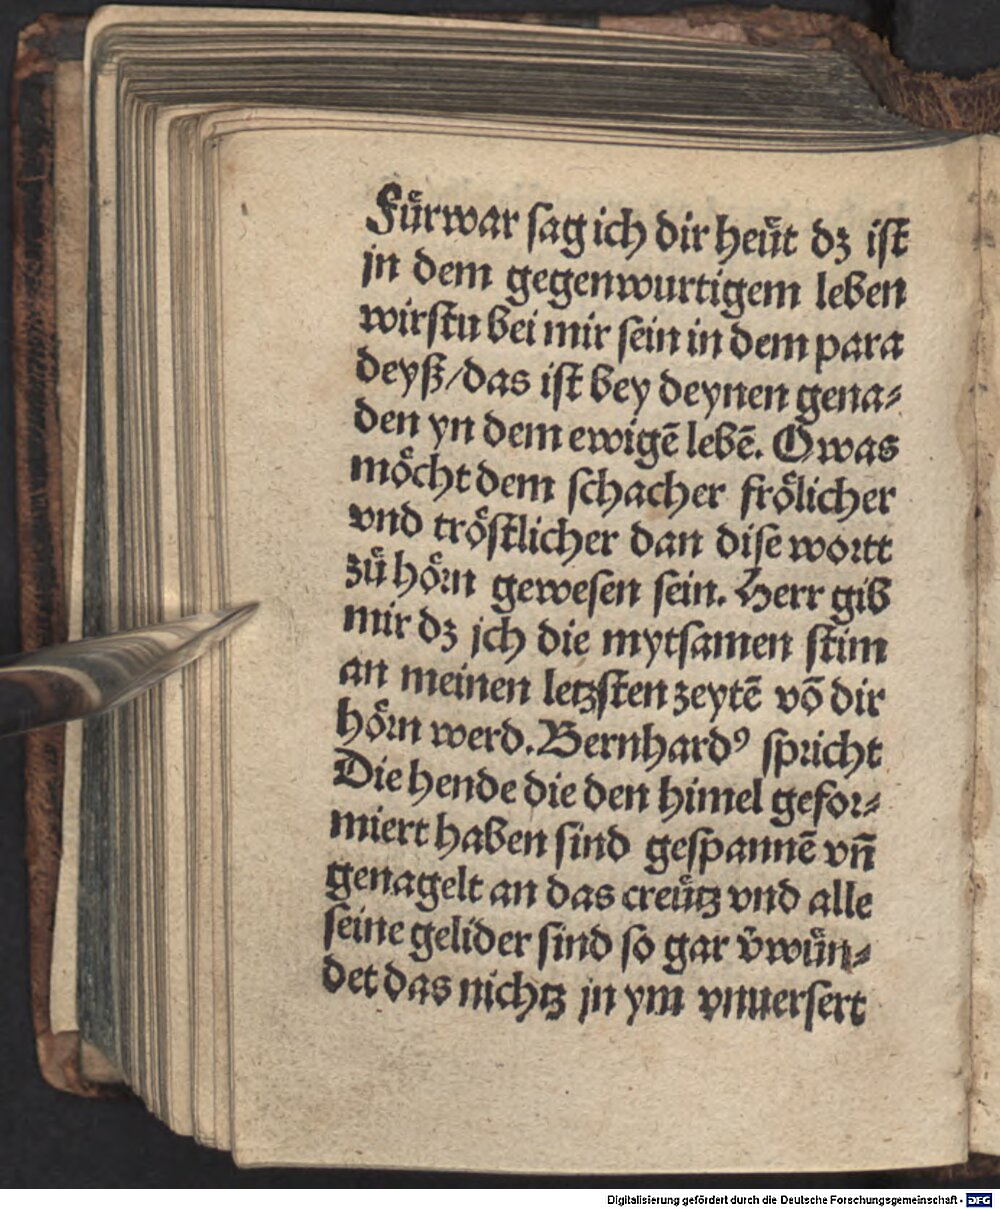 Fuͤrwar sag ich dir heuͤt dz ist
jn dem gegenwurtigem leben
wirstu bei mir sein in dem para
deyß/das ist bey deynen gena⸗
den yn dem ewigē lebē. O was
moͤcht dem schacher froͤlicher
vnd troͤstlicher dan dise wortt
zuͤ hoͤrn gewesen sein. Herr gib
mir dz jch die mytsamen stim
an meinen letzsten zeytē vō dir
hoͤrn werd. Bernhardꝰ spricht
Die hende die den himel gefor⸗
miert haben sind gespannē vn̄
genagelt an das creuͤtz vnd alle
seine gelider sind so gar v̄wuͤn⸗
det das nichtz jn ym vnuersert
Digitalisierung gefördert durch die Deutsche Forschungsgemeinschaft - DFG